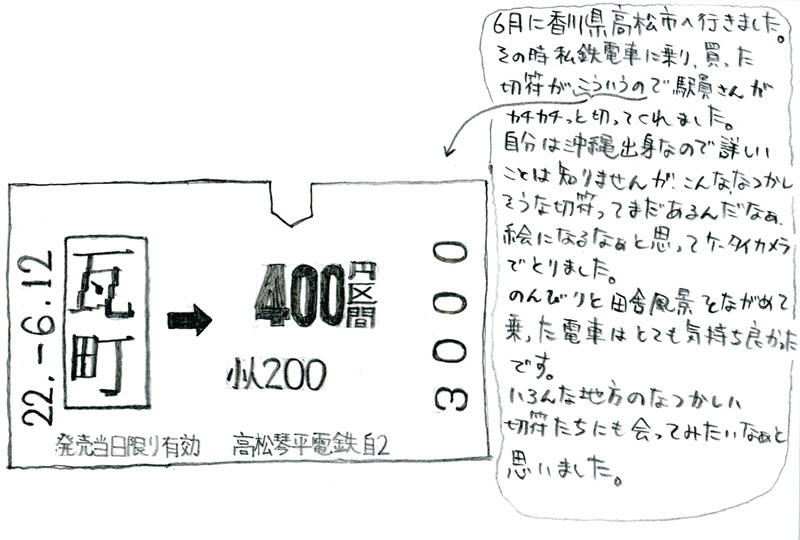 6月に香川県高松市へ行きました。
その時私鉄電車に乗り、買った
切符がこういうので駅員さんが
カチカチっと切ってくれました。
自分は沖縄出身なので詳しい
ことは知りませんが、こんな、なつかし
そうな切符ってまだあるんだなぁ、
絵になるなぁと思ってケータイカメラ
でとりました。
のんびりと田舎風景をながめて
乗った電車はとても気持ち良かった
です。
いろんな地方のなつかしい
切符たちにも会ってみたいなぁと
思いました。
22.-6.12
瓦町
➡
400円区間
小人200
3000
発売当日限り有効
高松琴平電鉄 自2